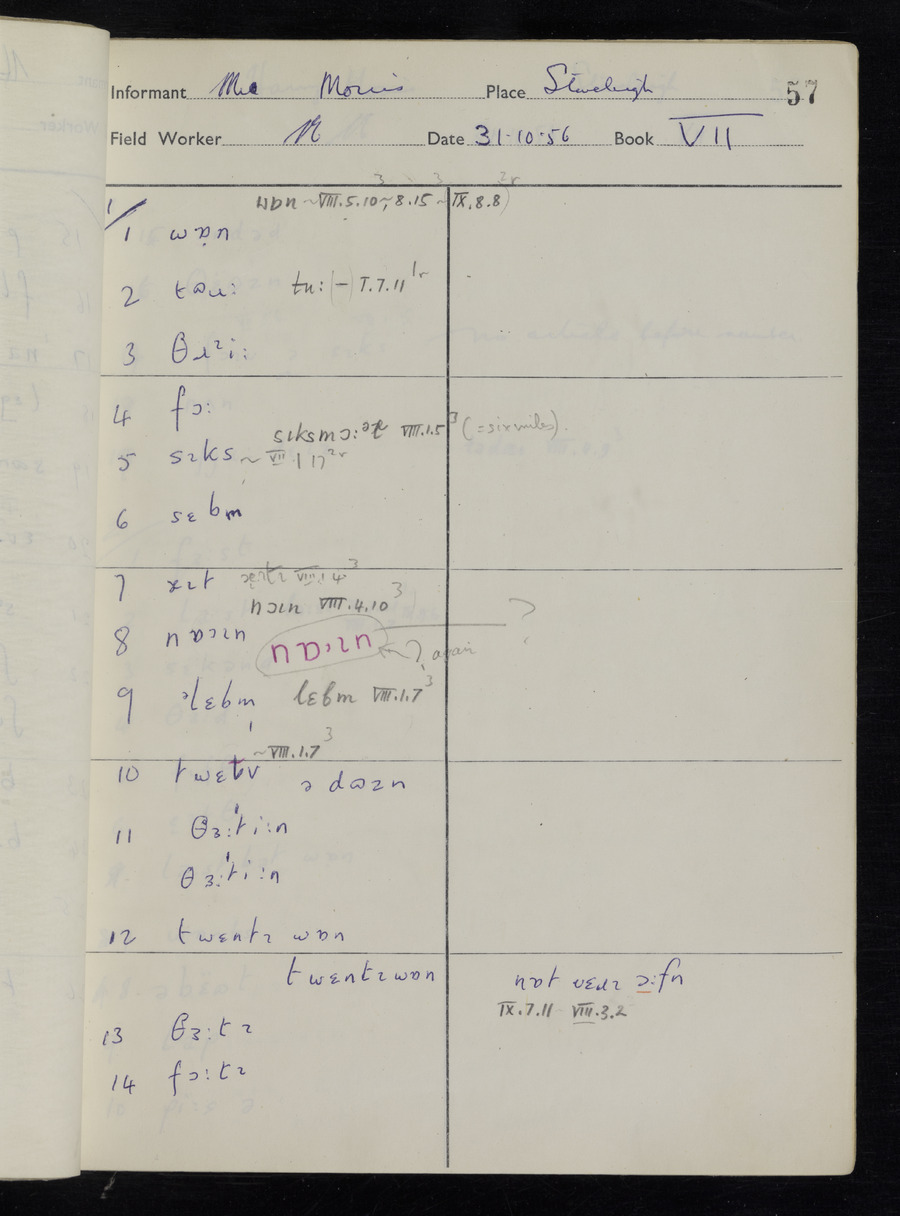 57
Informant Morris Place
Field Worker Date 31-10-56 Book VII
1/ wɒn ~ VIII.5.10 ~, 8.15 ~ IX.8.8
1 wɒn
2 təu: tu: (-) I.7.11 1r
3 θɹɪi:
4 fɔ:
sɪksmɔ: VIII.1.5 3 (=six miles).
5 sɪks ~ VII.1.17 2r
6 sɛbm
7 VIII.1.4 3
nɔɪn VIII.4.10 3
8 nɒɪn nɒ·ɪn ? again ?
9 əlɛbm lɛbm VIII.1.7 3
~ VIII.1.7 3
10 twɛlv ə dɒzn
11 θɜ:ˈti:n
θɜ:ˈti:n
12 twɛntɪ wɒn
twɛntɪwɒn nɒt vɛɹɪ ɔ:fn
IX.7.11 VIII.3.2
13 θɜ:tɪ
14 fɔ:tɪ